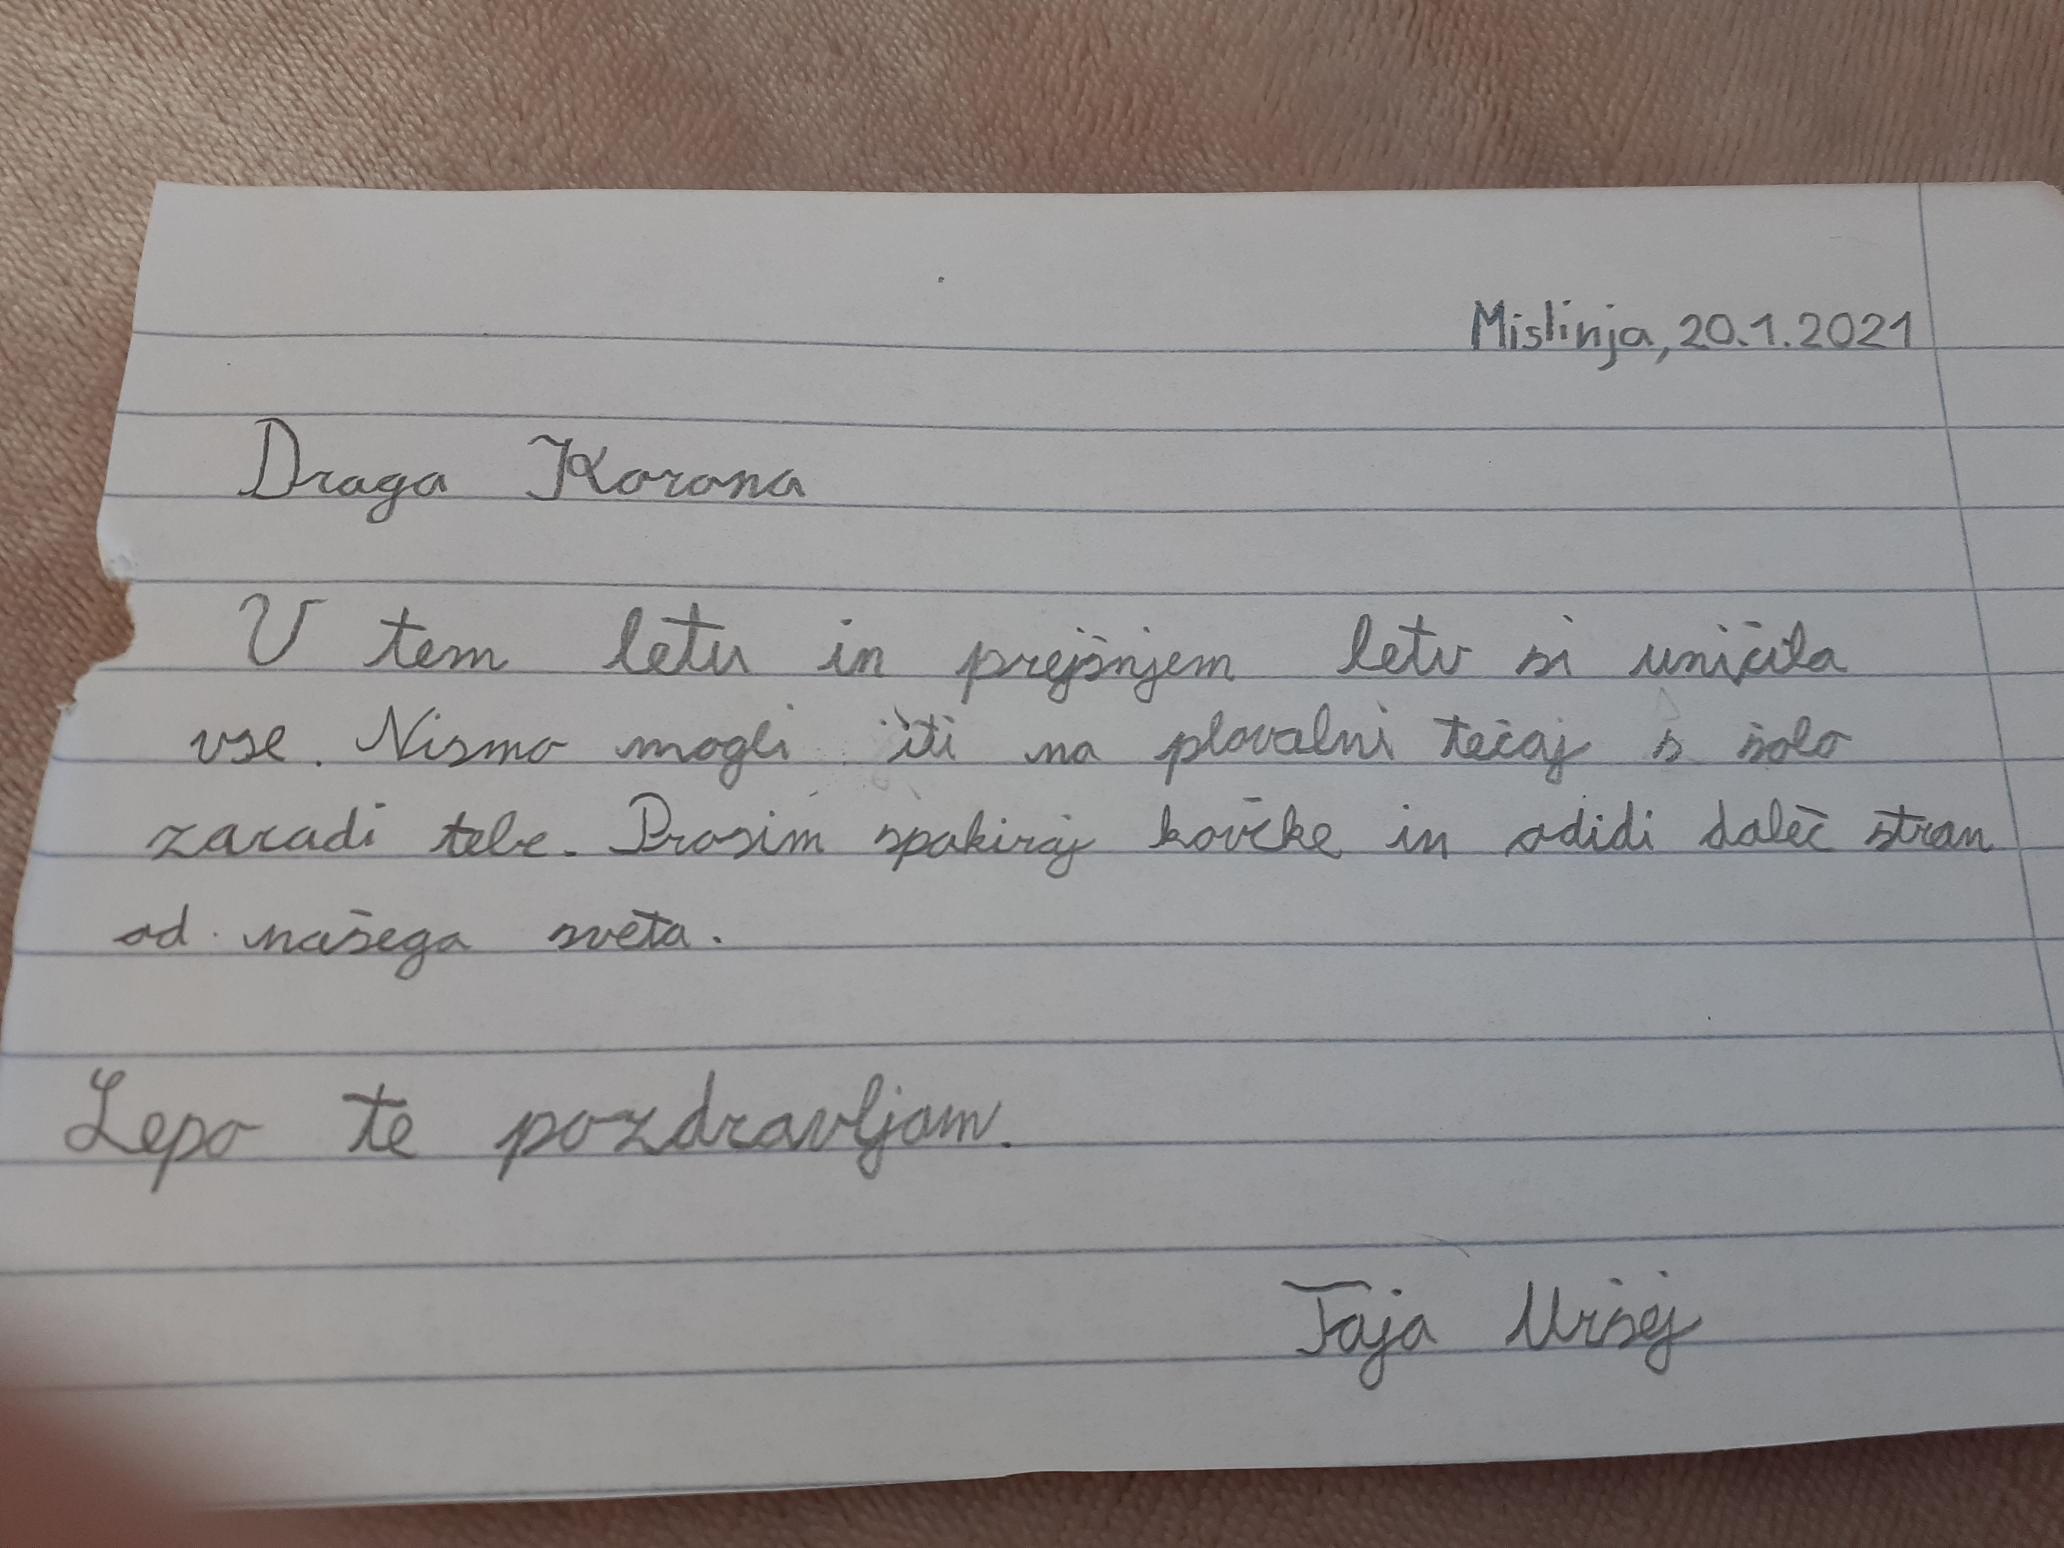 Mislinja, 20.1.2021
Draga Korona
V tem letu in prejšnjem letu si uničila
vse. Nismo mogli iti na plavalni tečaj s šolo
zaradi tebe. Prosim spakiraj kovčke in odidi daleč stran
od našega sveta.
Lepo te pozdravljam.
Taja Uršej